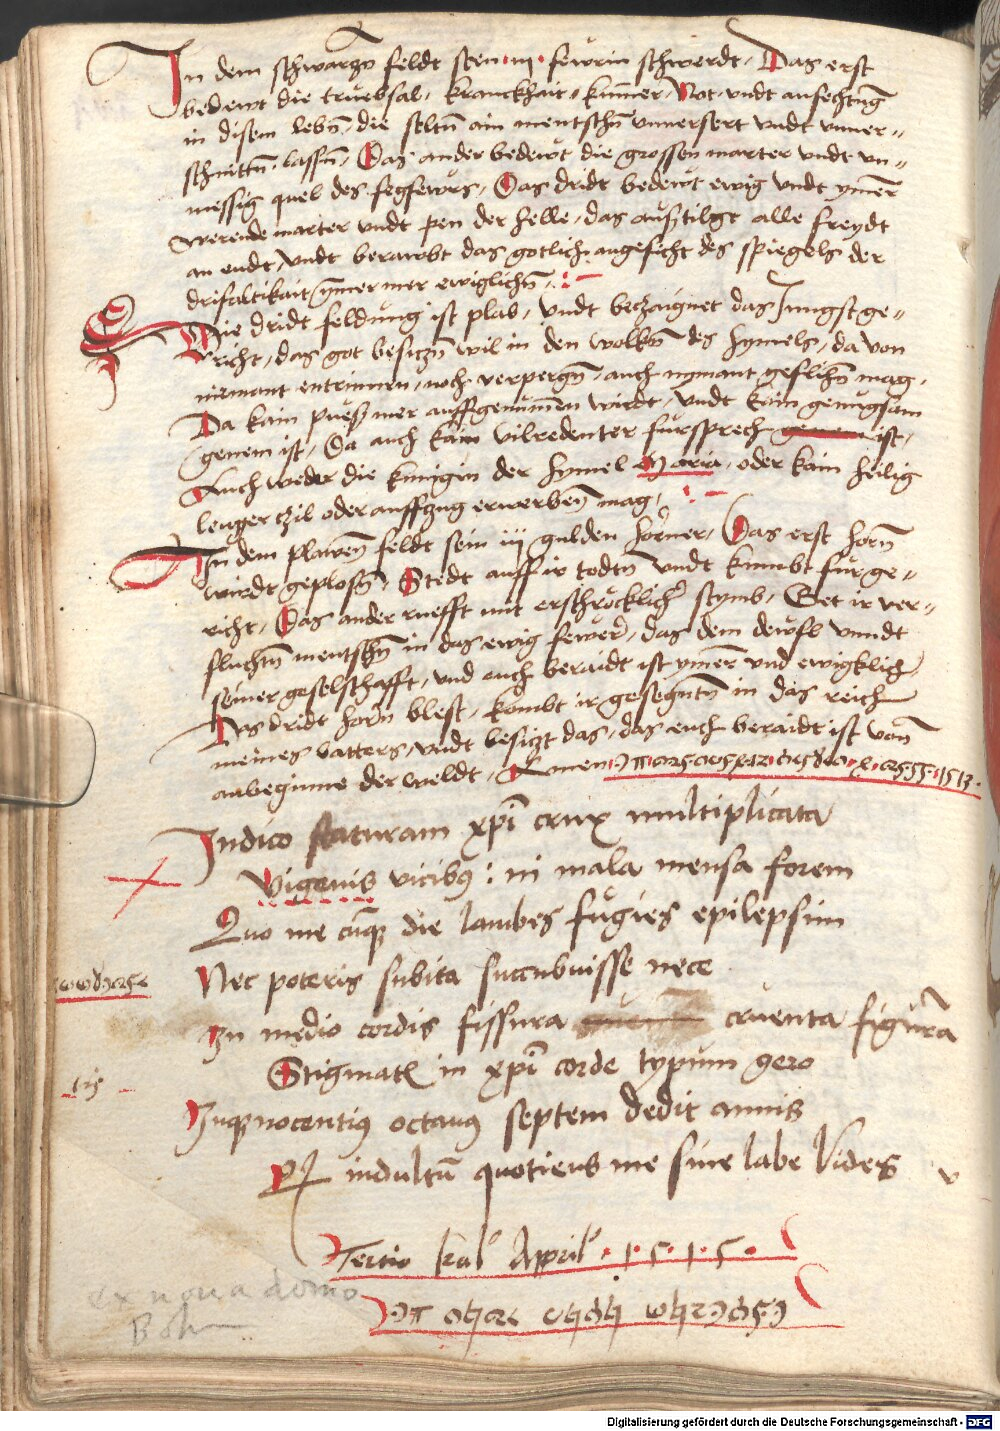 In dem schwarzñ feldt seen · iij · fewrin schwerdt / Das erst
bedewt die truebsal / kranckhait / kum̃er / Not / vndt anfechtũg
in disem lebñ / die seltñ ain mentschñ vnuersert vndt vnuer=
schnittñ lassñ / Das ander bedewt die grossen marter vndt vn=
messig quel des fegfewrs / Das dridt bedewt ewig vndt ym̃er
werende marter vndt pen der helle / das außtilgt alle freydt
an endt / vndt berawbt das gotlich angesicht des spiegels der
drifaltikait ym̃er mer ewiglichñ
Die dridt feldung ist plab / vndt beczaignet das Jungst ge=
richt / das got besiczñ wil in den wolkñ des hymels / da von
niemant entrinnen / noch verpergñ / auch nymant geflihñ mag /
Da kain pueß mer auffgenum̃en wirdt / vndt kain genugsam
genem ist / Da auch kain vilredenter fursprech ist /
Auch weder die kunigin der hymel Maria / oder kain heilig
lenger czil oder auffczug erwerbeñ mag /
In dem plaweñ feldt sein iij gulden horner / Das erst horñ
wirdt geplosñ / Stedt auff ir todtñ vndt kumbt fur ge=
richt / Das ander ruefft mit erschrocklicher stymb / Get ir ver=
fluchtñ mentschñ in das ewig fewer / das dem dewfl vnndt
seiner geselschafft / vnd euch beraidt ist ymer vnd ewigklich /
Das dridt horn blest / kombt ir gesegntñ in das reich
meines vatters / vndt besiczt das / das euch beraidt ist voñ
anbeginne der weldt / Amen 1513 ·
Indico staturam xp̃i crux multiplicata
Vigenis vicibus : ni mala mensa forem
Quo me cũque die lambis fugies epilepsim
Nec poteris subita succubuisse nece
In medio cordis fissura cruenta figurã
Stigmatis in xp̃i corde typum gero
Inque nocentius octauus septem dedit annis
tis
Per indultũ quotiens me sine labe vides
Tertio kal° April° · 1 · 5 · 1 · 5 ·
ex noua domo
Digitalisierung gefördert durch die Deutsche Forschungsgemeinschaft - DFG